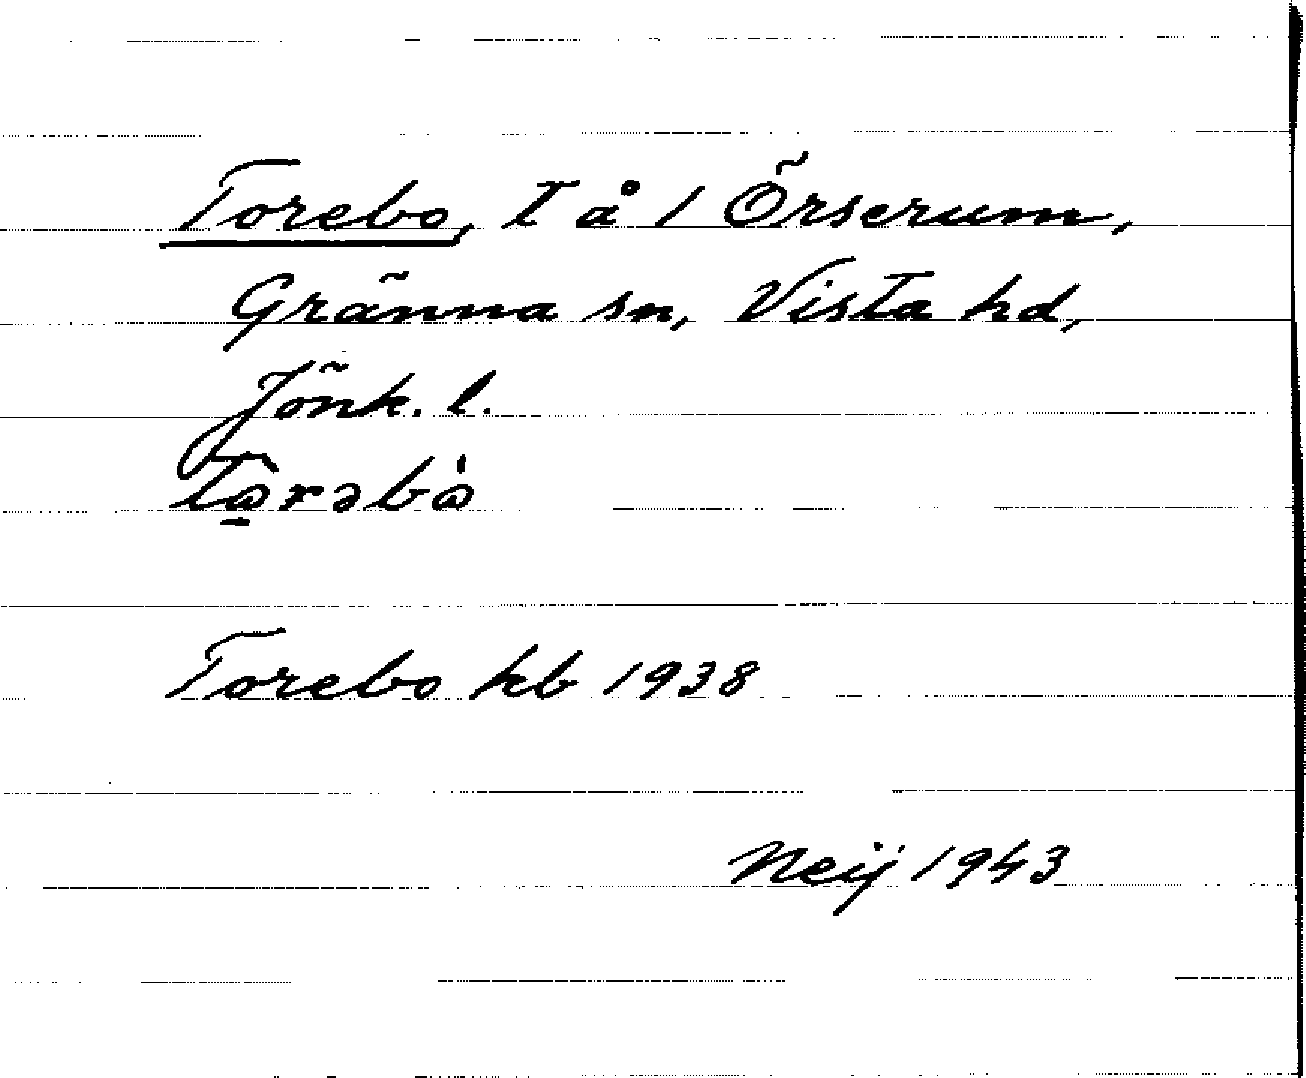 Torebo, t å 1 Örserum,
Gränna sn, Vista hd,
Jönk. l.
Torebo kb 1938
Neij 1943